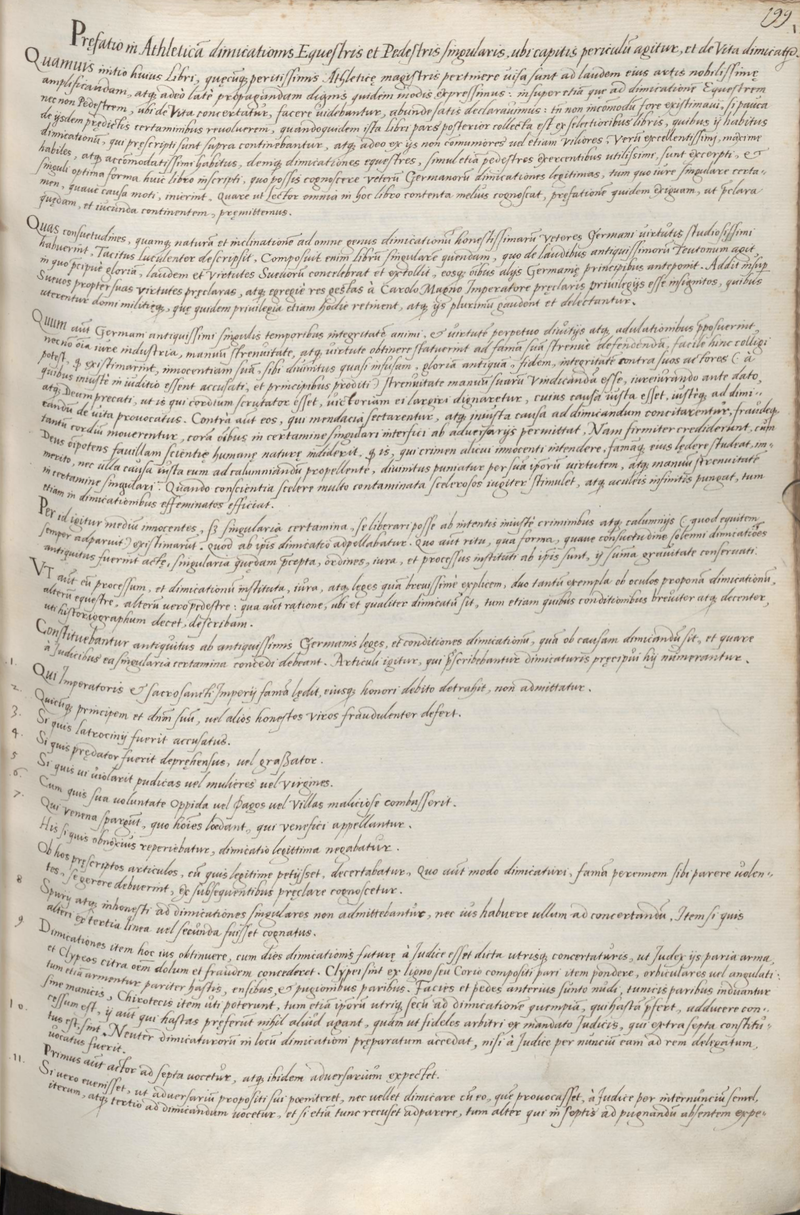 199.
Prefatio in Athleticā dimicationis Equestris et Pedestris singularis, ubi capitis periculū agitur, et de Vita dimicatio.
Quamuis initio huius Libri, quęcūq peritissimis Athleticę magistris pertinere visa sunt ad laudem eius artis nobilissimę
amplificandam, atq adeò latè propagandam dignis quidem modis expressimus: insuper etiā quę ad dimicationē Equestrem
nec non Pedestrem, ubi de Vita concertatur, facere videbantur, abunde satis declarauimus: tn non incōmodū fore existimaui, si pauca
de ijsdem prędictis certaminibus reuoluerem, quandoquidem ista libri pars posterior collecta est ex selectioribus libris, quibus ij habitus
dimicationū, qui prescripti sunt supra continebantur, atq adeo ex ijs non comunores vel etiam viliores: Verū excellentissimi, maximè
habiles, atq accōmodatissimi habitus, deniq dimicationes equestres, simul etiā pedestres exercentibus utilissimę, sunt excerpti, &
singuli optima forma huic libro inscripti, quo possis cognoscere veterū Germanorū dimicationes legitimas, tum quo iure singulare certa-
men, quaue causa moti, inierint. Quare ut Lector omnia in hoc libro contenta melius cognoscat, prefatione quidem exiguam, at pclara
quędam, et iucunda continentem, pręmittemus.
Quas consuetudines, quamq naturā et inclinationē ad omne genus dimicationū honestissimarū Vetores Germani virtutis studiosissimi
habuerint, Tacitus luculenter descripsit. Composuit enim librū singulare quendam, quo de laudibus antiquissimorū Teutonum agit,
in quo pcipuè gloria, laudem et Virtutes Sueuorū concelebrat et extollit, eosq oībus alijs Germanię principibus anteponit. Addit insup
Sueuos propter suas virtutes pręclaras, atq egregiè res gestas à Carolo Magno Imperatore pręclaris priuilegijs esse insignitos, quibus
uterentur domi militięq, quę quidem priuilegia etiam hodie retinent, atq ijs plurimū gaudent et delectantur.
Quum aūt Germani antiquissimi singulis temporibus integritatē animi, & virtutē perpetuo diuitijs atq adulationibus pposuerint,
nec nō oīa iure industria, manuū strenuitate, atq virtute obtinere statuerint ad famā suā strenuè defendendā, facile hinc colligi
potest, q existimarint, innocentiam suā, sibi diuinitus quasi insusam, gloria antiquā, fidem, integritatē contra suos actores (à
quibus iniustè in iuditio essent accusati, et principibus proditi) strenuitate manuū suarū vindicandā esse, iureiurando ante dato,
atq Deum precati, ut is qui cordium scrutator esset, victoriam ei largiri dignaretur, cuius causa iusta esset, iustèq ad dimi-
candū de vita prouocatus. Contrà aūt eos, qui mendacia sectarentur, atq iniusta causa ad dimicandum concitarentur, fraudeq
tantū cordiū mouerentur, corā oībus in certamine singulari interfici ab aduersarijs permittat. Nam firmiter crediderunt, cūm
Deus oīpotens fauillam scientię humanę naturę indiderit, q is, qui crimen alicui innocenti intendere, famāq eius lędere studeat, im-
merito, nec ulla causa iusta eum ad calumniandū propellente, diuinitus puniatur per sua iporū virtutem, atq manuū strenuitatē
in certamine singulari. Quando conscientia scelere multo contaminata scelerosos iugiter stimulet, atq aculeis infinitis pungat, tum
etiam in dimicationibus effeminatos efficiat.
Per id igitur mediū innocentes, (ß singularia certamina, se liberari posse ab intentis iniustè criminibus atq calumnijs (quod equitem
semper adparuit) existimarūt. Quod ab ipsis dimicatio adpellabatur. Quo aūt ritu, qua forma, quaue consuetudine solemni dimicatioēs
antiquitus fuerint actę, singularia quędam pcepta, ordines, iura, et processus instituti ab ipsis sunt, ij suma grauitate conseruati.
VT aūt eū processum, et dimicationū instituta, iura, atq leges quā breuissimè explicem, duo tantū exempla ob oculos proponā dimicationū,
alterū equestre, alterū vero pedestre: qua aūt ratione, ubi et qualiter dimicatū sit, tum etiam quibus conditionibus breuiter atq decenter,
uti historiographum decet, describam.
Constituebantur antiquitus ab antiquissimis Germanis leges, et conditiones dimicationū, quā ob causam dimicandū sit, et quare
à Judicibus ea singularia certamina concedi debeant. Articuli igitur, qui pscribebantur dimicaturis pręcipui hij numerantur.
.1. Qui Imperatoris & sacrosancti Imperij famā lędit, eiusq honori debito detrahit, non admittatur.
2. Quicūq principem et dnm suū, vel alios honestos viros fraudulenter defert.
3. Si quis latrocinij fuerit accusatus.
4. Si quis prędator fuerit deprehensus, vel graßator.
5 Si quis vi violarit pudicas vel mulieres vel virgines.
6 Cum quis sua voluntate Oppida vel Pagos vel Villas maliciosè combusserit.
7. Qui venena spargūt, quo hoīes lœdant, qui venefici appellantur.
His si quis obnoxius reperiebatur, dimicatio legittima negabatur.
Ob hos pręscriptos articulos, cū quis legitimè petijsset, decertabatur, Quo aūt modo dimicaturi, famā perennem sibi parere volen-
tes, se gerere debuerint, ex subsequentibus pręclarè cognoscetur.
8 Spurij atq inhonesti ad dimicationes singulares non admittebantur, nec ius habuere ullum ad concertandū. Item si quis
alteri ex tertia linea vel secunda fuisset cognatus.
9 Dimicationes item hoc ius obtinuere, cum dies dimicationis futurę à Judice esset dicta utrisq concertaturis, ut Judex ijs paria arma,
et Clypeos citra oēm dolum et fraudem concederet. Clypei sint ex ligno seu Corio compositi pari item pondere, orbiculares vel angulati:
tum etiā armentur pariter hastis, ensibus, et pugionibus paribus. Facies et pedes anterius sunto nudi, tunicis paribus induantur
sine manicis, Chirotecis item uti poterunt, tum etiā iporū utriq secū ad dimicationē quempiā, qui hastā pfert, adducere con-
cessum est, ij aūt qui hastas pręferūt nihil aliud agant, quàm ut fideles arbitri ex mandato Judicis, qui extra septa constitu-
10. tus est, sint. Neuter dimicaturorū in locū dimicationi pręparatum accedat, nisi à Judice per nunciū eam ad rem delegatum,
uocatus fuerit.
.11. Primus aūt actor ad septa vocetur, atq ibidem aduersarium expectet.
Si vero euenisset, ut aduersariū propositi sui pœniteret, nec vellet dimicare cū eo, quē prouocasset, à Judice per internunciū semel,
iterum, atq tertio ad dimicandum vocetur, et si etiā tunc recuset adparere, tum alter qui in septis ad pugnandū absentem expe-